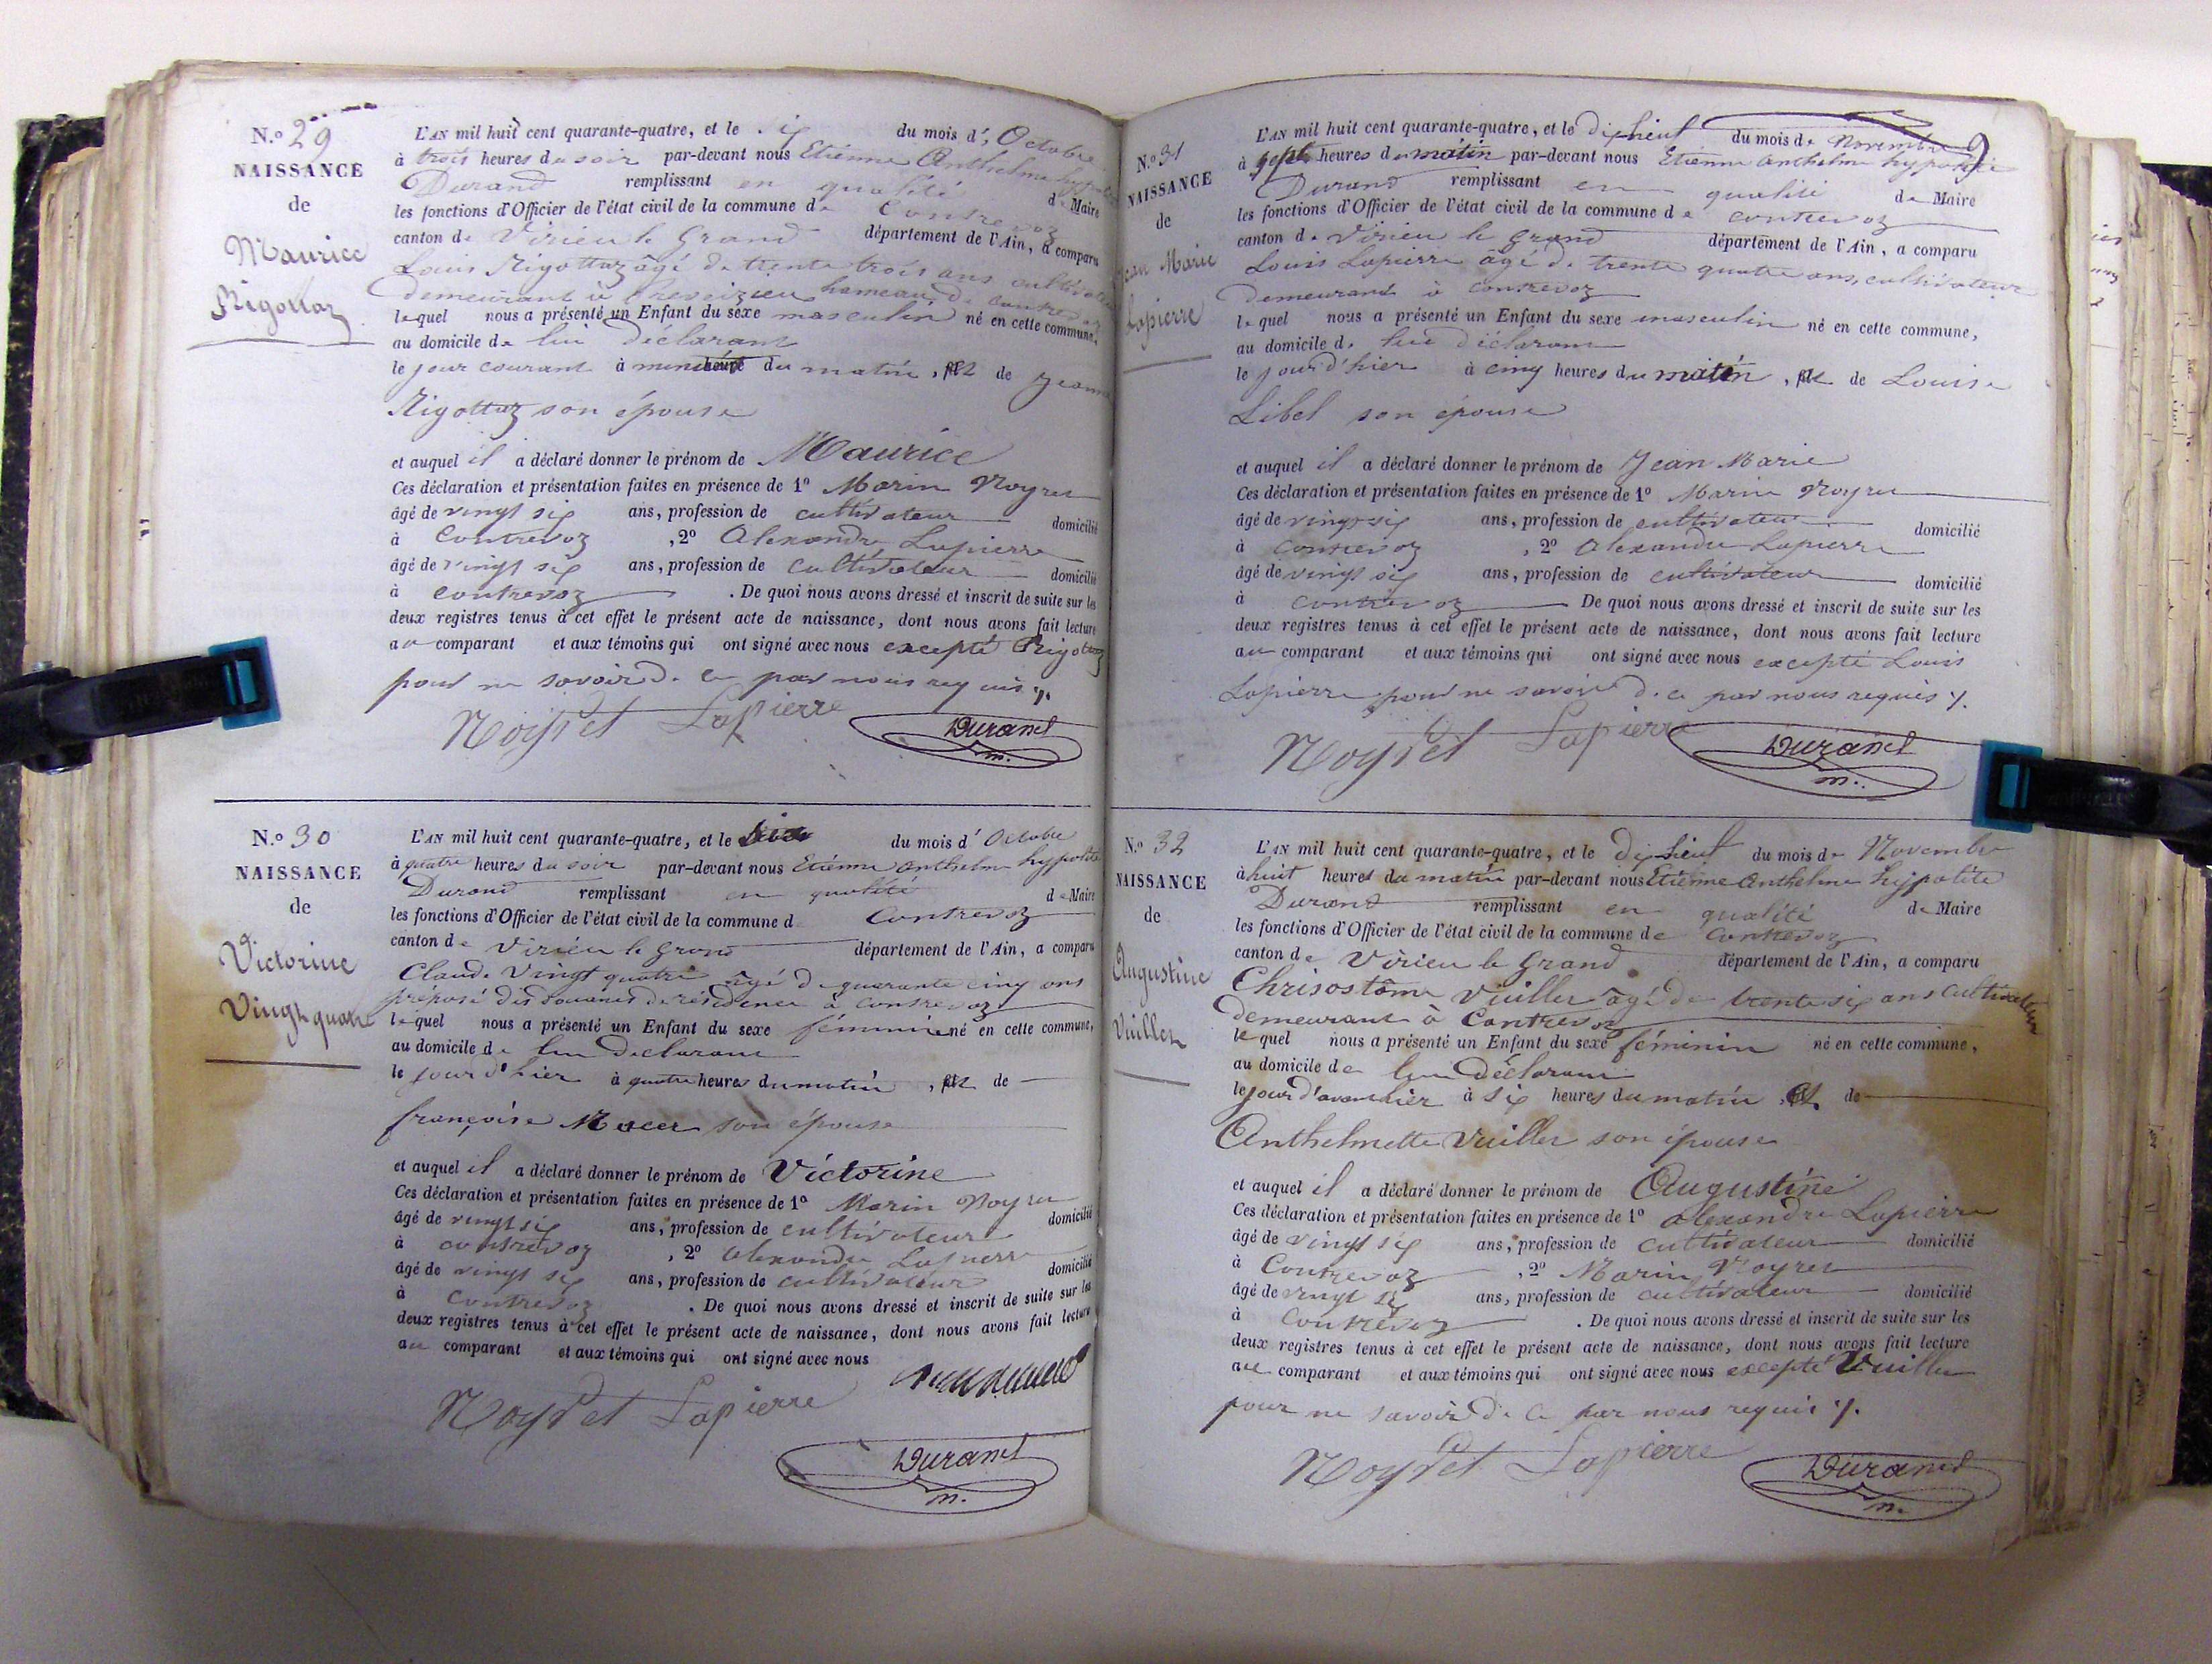 N.º 29
NAISSANCE
de
Maurice
Rigottaz
L'AN mil huit cent quarante-quatre, et le six du mois d' Octobre
à trois heures du soir par-devant nous Etienne Anthelme hypolite
Durand remplissant en qualité de Maire
les fonctions d'Officier de l'état civil de la commune de Contrevoz
canton de Virieu le Grand département de l'Ain, a comparu
Louis Rigottaz âgé de trente trois ans cultivateur
demeurant à Preveizieu hameau de Contrevoz
lequel nous a présenté un Enfant du sexe masculin né en cette commune,
au domicile de lui déclarant
le jour courant à minuit du matin, de Jeanne
Rigottaz son épouse
et auquel il a déclaré donner le prénom de Maurice
Ces déclaration et présentation faites en présence de 1º Marin Noyret
âgé de vingt six ans, profession de cultivateur domicilié
à Contrevoz , 2º Alexandre Lapierre
âgé de vingt six ans, profession de cultivateur domicilié
à contrevoz . De quoi nous avons dressé et inscrit de suite sur les
deux registres tenus à cet effet le présent acte de naissance, dont nous avons fait lecture
au comparant et aux témoins qui ont signé avec nous excepté Rigottaz
pour ne savoir de ce par nous requis ./.
Noyret Lapierre Durand
m.
N.º 30
NAISSANCE
de
Victorine
Vingt quatre
L'AN mil huit cent quarante-quatre, et le du mois d' Octobre
à quatre heures du soir par-devant nous Etienne anthelme hypolite
Durand remplissant en qualité de Maire
les fonctions d'Officier de l'état civil de la commune d Contrevoz
canton de Virieu le Grand département de l'Ain, a comparu
Claude Vingt quatre âgé de quarante cinq ans
préposé des douanes de résidence à Contrevoz
lequel nous a présenté un Enfant du sexe féminin né en cette commune,
au domicile de lui déclarant
le jour d'hier à quatre heures du matin, de
françoise son épouse
et auquel il a déclaré donner le prénom de Victorine
Ces déclaration et présentation faites en présence de 1º Marin Noyret
âgé de vingt six ans, profession de cultivateur domicilié
à contrevoz , 2º alexandre Lapierre
âgé de vingt six ans, profession de cultivateur domicilié
à Contrevoz . De quoi nous avons dressé et inscrit de suite sur les
deux registres tenus à cet effet le présent acte de naissance, dont nous avons fait lecture
au comparant et aux témoins qui ont signé avec nous
Noyret Lapierre
Durand
m.
N.º 31
NAISSANCE
de
Jean Marie
Lapierre
L'AN mil huit cent quarante-quatre, et le dixhuit du mois de Novembre
à sept heures du matin par-devant nous Etienne anthelme hypolite
Durand remplissant en qualité de Maire
les fonctions d'Officier de l'état civil de la commune de contrevoz
canton de Virieu le Grand département de l'Ain, a comparu
Louis Lapierre âgé de trente quatre ans, cultivateur
demeurant à contrevoz
lequel nous a présenté un Enfant du sexe masculin né en cette commune,
au domicile de lui déclarant
le jour d'hier à cinq heures du matin, de Louise
Libel son épouse
et auquel il a déclaré donner le prénom de Jean Marie
Ces déclaration et présentation faites en présence de 1º Marin Noyret
âgé de vingt six ans, profession de cultivateur domicilié
à contrevoz , 2º alexandre Lapierre
âgé de vingt six ans, profession de cultivateur domicilié
à contrevoz De quoi nous avons dressé et inscrit de suite sur les
deux registres tenus à cet effet le présent acte de naissance, dont nous avons fait lecture
au comparant et aux témoins qui ont signé avec nous excepté Louis
Lapierre pour ne savoir de ce par nous requis ./.
Noyret Lapierre Durand
m.
N.º 32
NAISSANCE
de
Augustine
Vuiller
L'AN mil huit cent quarante-quatre, et le dixhuit du mois de Novembre
à huit heures du matin par-devant nous Etienne Anthelme hypolite
Durand remplissant en qualité de Maire
les fonctions d'Officier de l'état civil de la commune de Contrevoz
canton de Virieu le Grand département de l'Ain, a comparu
Chrisostôme Vuiller âgé de trente six ans cultivateur
demeurant à Contrevoz
lequel nous a présenté un Enfant du sexe féminin né en cette commune,
au domicile de lui déclarant
le jour d'avant hier à six heures du matin, de
Anthelmette Vuiller son épouse
et auquel il a déclaré donner le prénom de Augustine
Ces déclaration et présentation faites en présence de 1º alexandre Lapierre
âgé de vingt six ans, profession de cultivateur domicilié
à Contrevoz , 2º Marin Noyret
âgé de vingt six ans, profession de cultivateur domicilié
à Contrevoz . De quoi nous avons dressé et inscrit de suite sur les
deux registres tenus à cet effet le présent acte de naissance, dont nous avons fait lecture
au comparant et aux témoins qui ont signé avec nous excepté Vuiller
pour ne savoir de ce par nous requis ./.
Noyret Lapierre Durand
m.